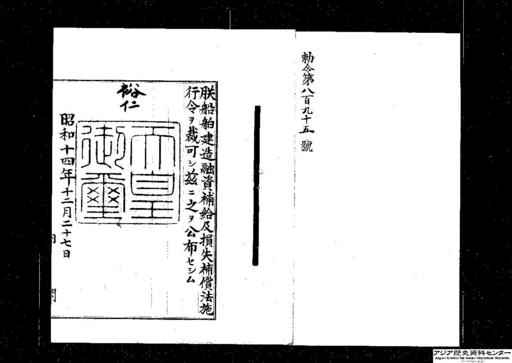 勅令第八百九十五號
朕船舶建造融資補給及損失補償法施
行令ヲ裁可シ玆ニ之ヲ公布セシム
裕仁
天皇御璽
昭和十四年十二月二十七日
アジア歴史資料センター
Japan Center for Asian Historical Records